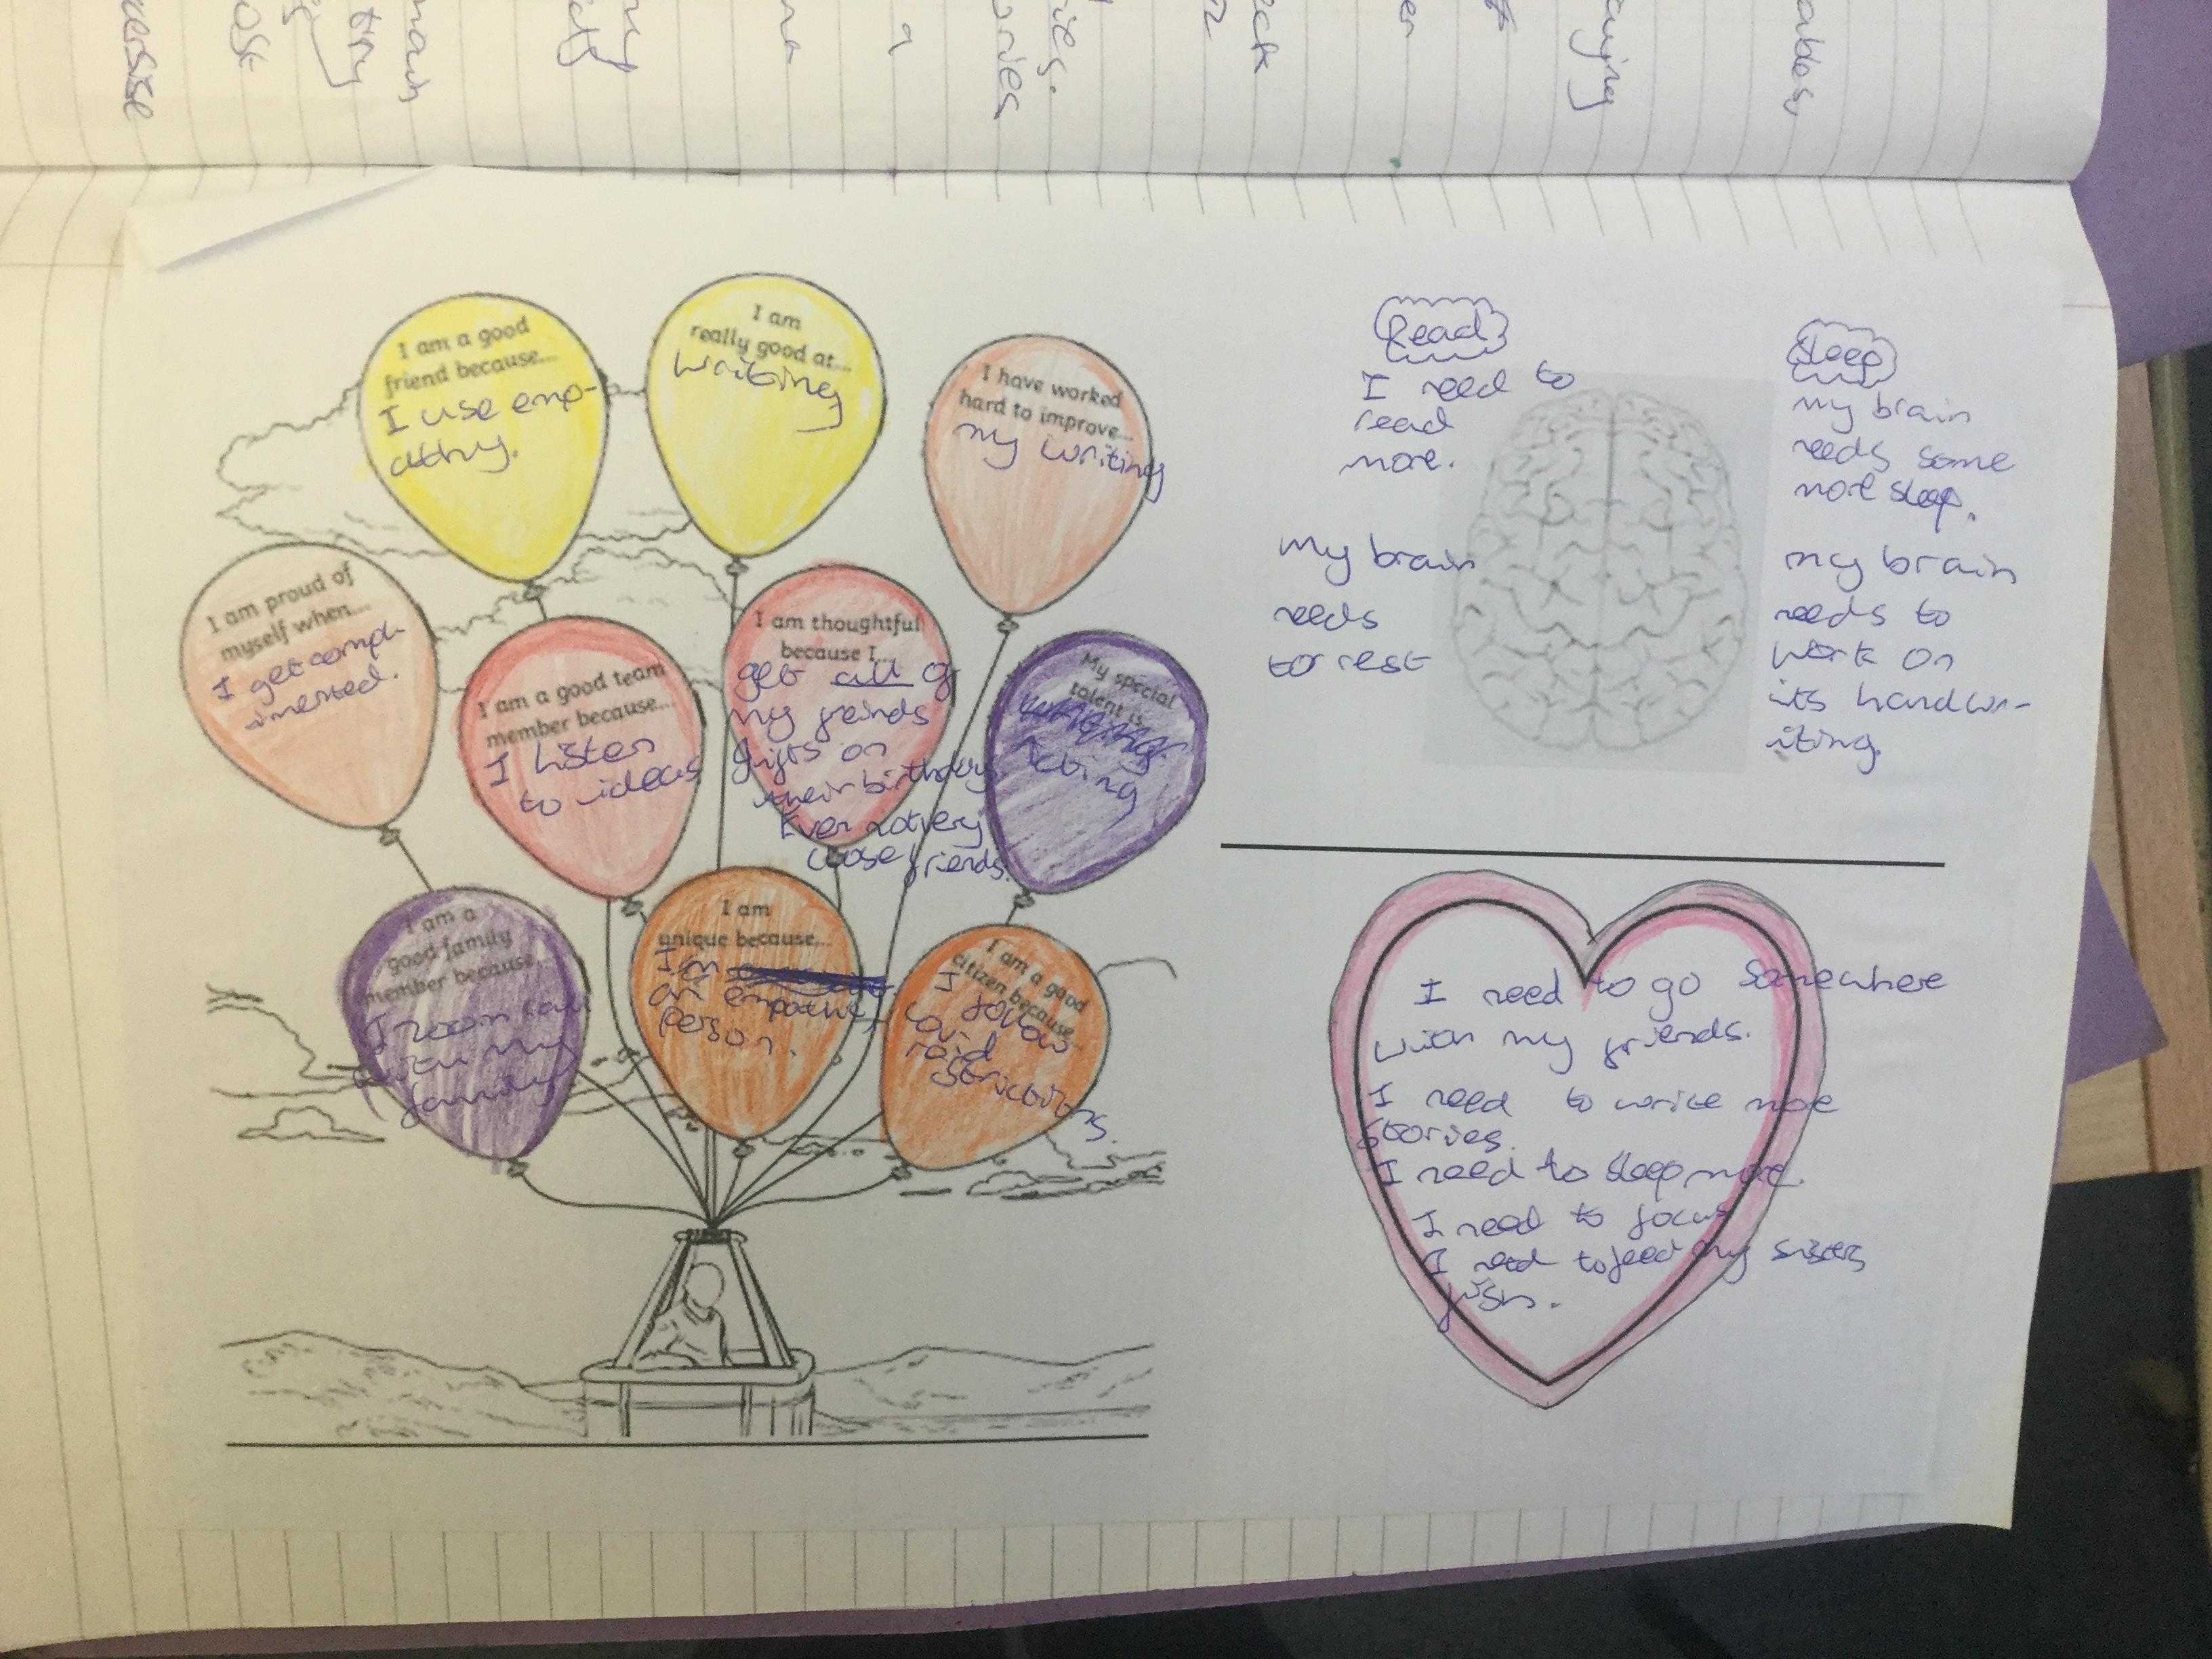 ercise
ost
try
main
my
a
ories
ies.
eck
er
aying
ables,
I am a good
friend because...
I use emp-
athy.
I am
really good at...
Writing
I have worked
hard to improve...
my writing
I am proud of
myself when...
I get compl-
imented.
I am a good team
member because...
I listen
to ideas
I am thoughtful
because I...
get all of
my freinds
gifts on
their birthday
Even not very
close friends.
My special
talent is...
Acting
I am a
good family
member because...
I zoom call
with my
family
I am
unique because...
I'm
an empathic
person.
I am a good
citizen because...
I follow
covid
restrictions.
Read
I need to
read
more.
My brain
needs
to rest
Sleep
my brain
needs some
more sleep.
my brain
needs to
work on
its handwr-
iting.
I need to go somewhere
with my friends.
I need to write more
stories.
I need to sleep more.
I need to focus
I need to feed my sisters
fish.